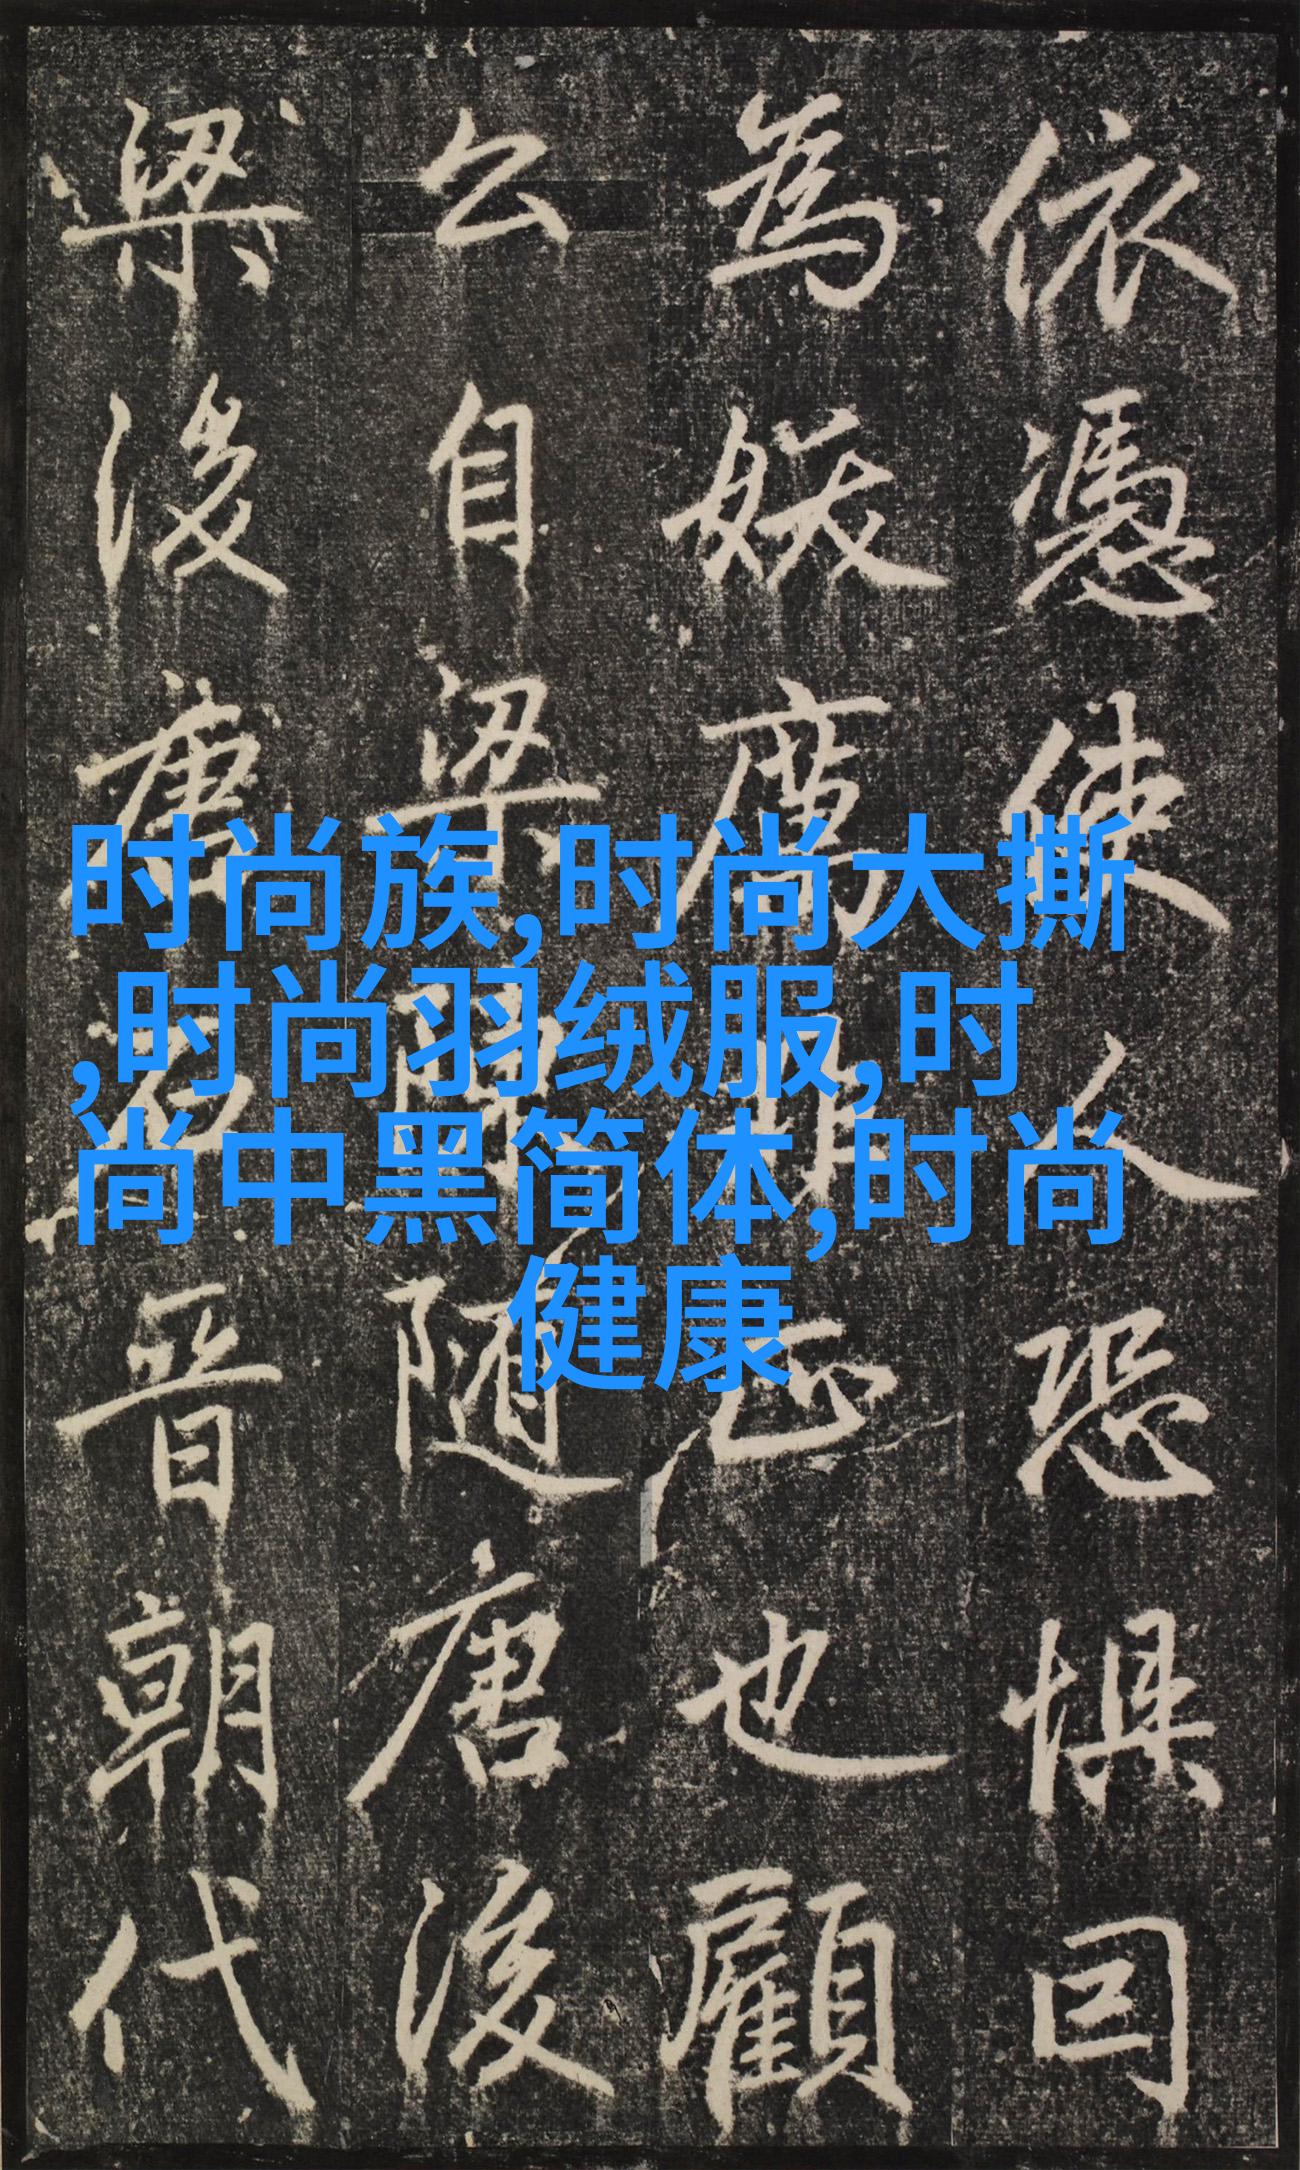 依憑使人恐懼
為妖厲非正也顧
公自梁隨唐後
梁後唐石晉朝代
时尚族,时尚大撕
,时尚羽绒服,时
尚中黑简体,时尚
健康